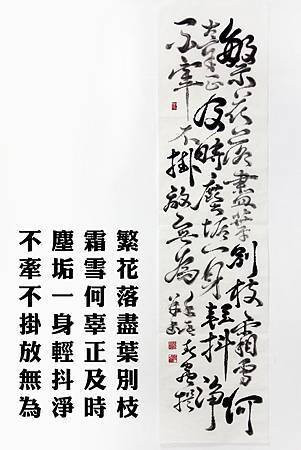 繁花落盡葉別枝霜雪何
辜正及時塵垢一身輕抖淨
不牽不掛放無為
繁花落盡葉別枝
霜雪何辜正及時
塵垢一身輕抖淨
不牽不掛放無為